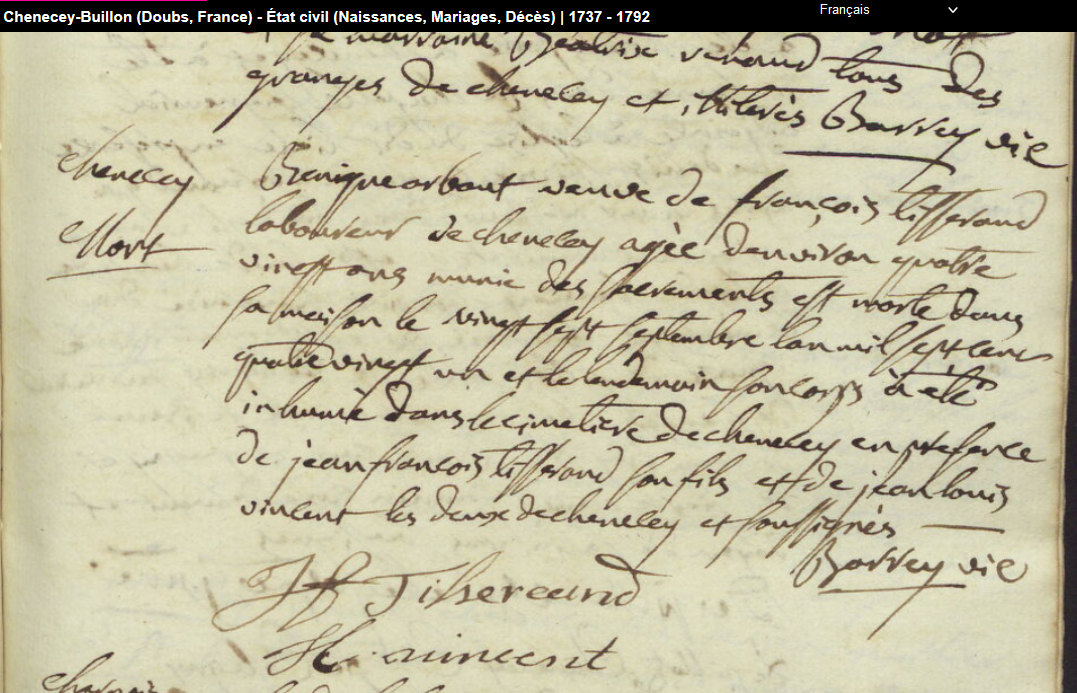 Chenecey-Buillon (Doubs, France) - État civil (Naissances, Mariages, Décès) | 1737 - 1792
Français
marraine Beatrix renaud tous des
granges de chenecey et illiterés Barrey vic
chenecey
Mort
Benigne arbout veuve de françois tifferand
laboureur de chenecey agée denviron quatre
vingt ans munie des sacrements est morte dans
sa maison le vingt sept septembre lan mil sept cent
quatre vingt un et le lendemain son corps à eté
inhumé dans le cimetiere de chenecey en presence
de jean francois tifferand son fils et de jean louis
vincent les deux de chenecey et soussignés
Barrey vic
JF Tihereand
JL vincent